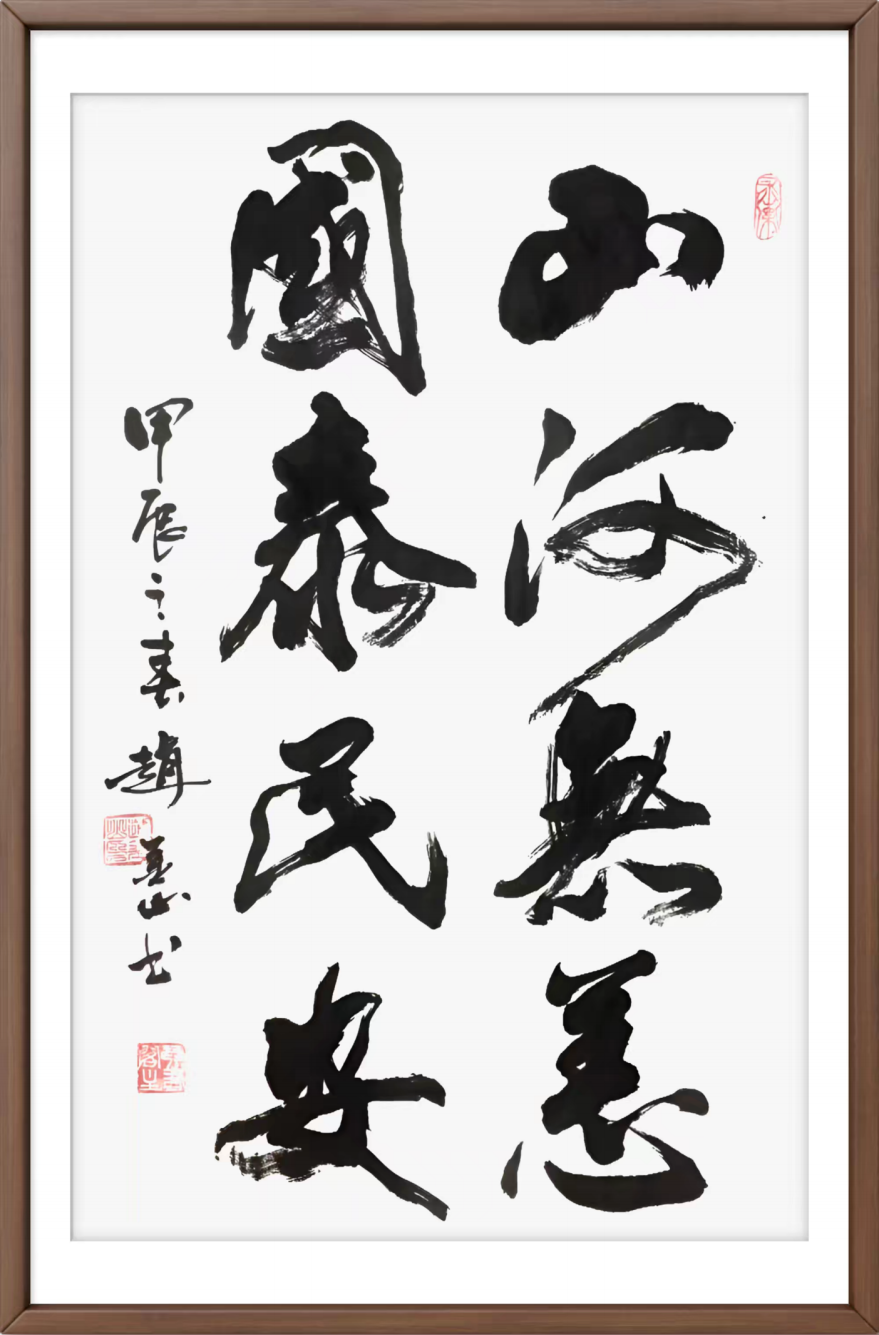 山河無恙
國泰民安
甲辰之春趙善山书